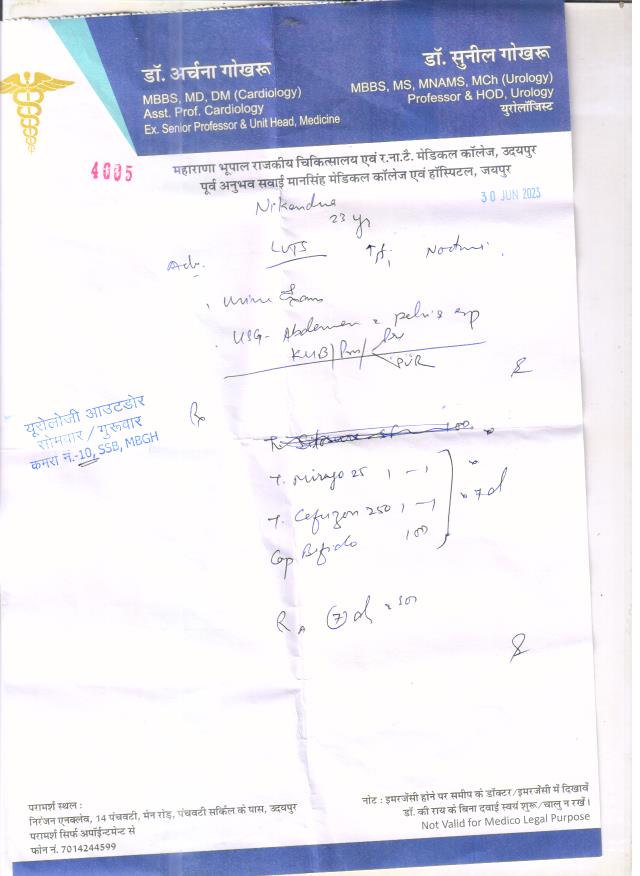 डॉ. अर्चना गोखरू
MBBS, MD, DM (Cardiology)
Asst. Prof. Cardiology
Ex. Senior Professor & Unit Head, Medicine
डॉ. सुनील गोखरू
MBBS, MS, MNAMS, MCh (Urology)
Professor & HOD, Urology
यूरोलॉजिस्ट
4005
महाराणा भूपाल राजकीय चिकित्सालय एवं र.ना.टै. मेडिकल कॉलेज, उदयपुर
पूर्व अनुभव सवाई मानसिंह मेडिकल कॉलेज एवं हॉस्पिटल, जयपुर
30 JUN 2023
23 yr
Adv. LUTS
Urine
USG- Abdomen pelvis
KUB/ PVR
यूरोलोजी आउटडोर
सोमवार / गुरूवार
कमरा नं.-10, SSB, MBGH
Rx
100
T. 25 1 - 1
7d
T. 250 1 - 1
Cap Bifido 100
7d
परामर्श स्थल :
निरंजन एनक्लेव, 14 पंचवटी, मेन रोड़, पंचवटी सर्किल के पास, उदयपुर
परामर्श सिर्फ अपॉईन्टमेन्ट से
फोन नं. 7014244599
नोट : इमरजेंसी होने पर समीप के डॉक्टर/इमरजेंसी में दिखावें
डॉ. की राय के बिना दवाई स्वयं शुरू/चालु न रखें।
Not Valid for Medico Legal Purpose